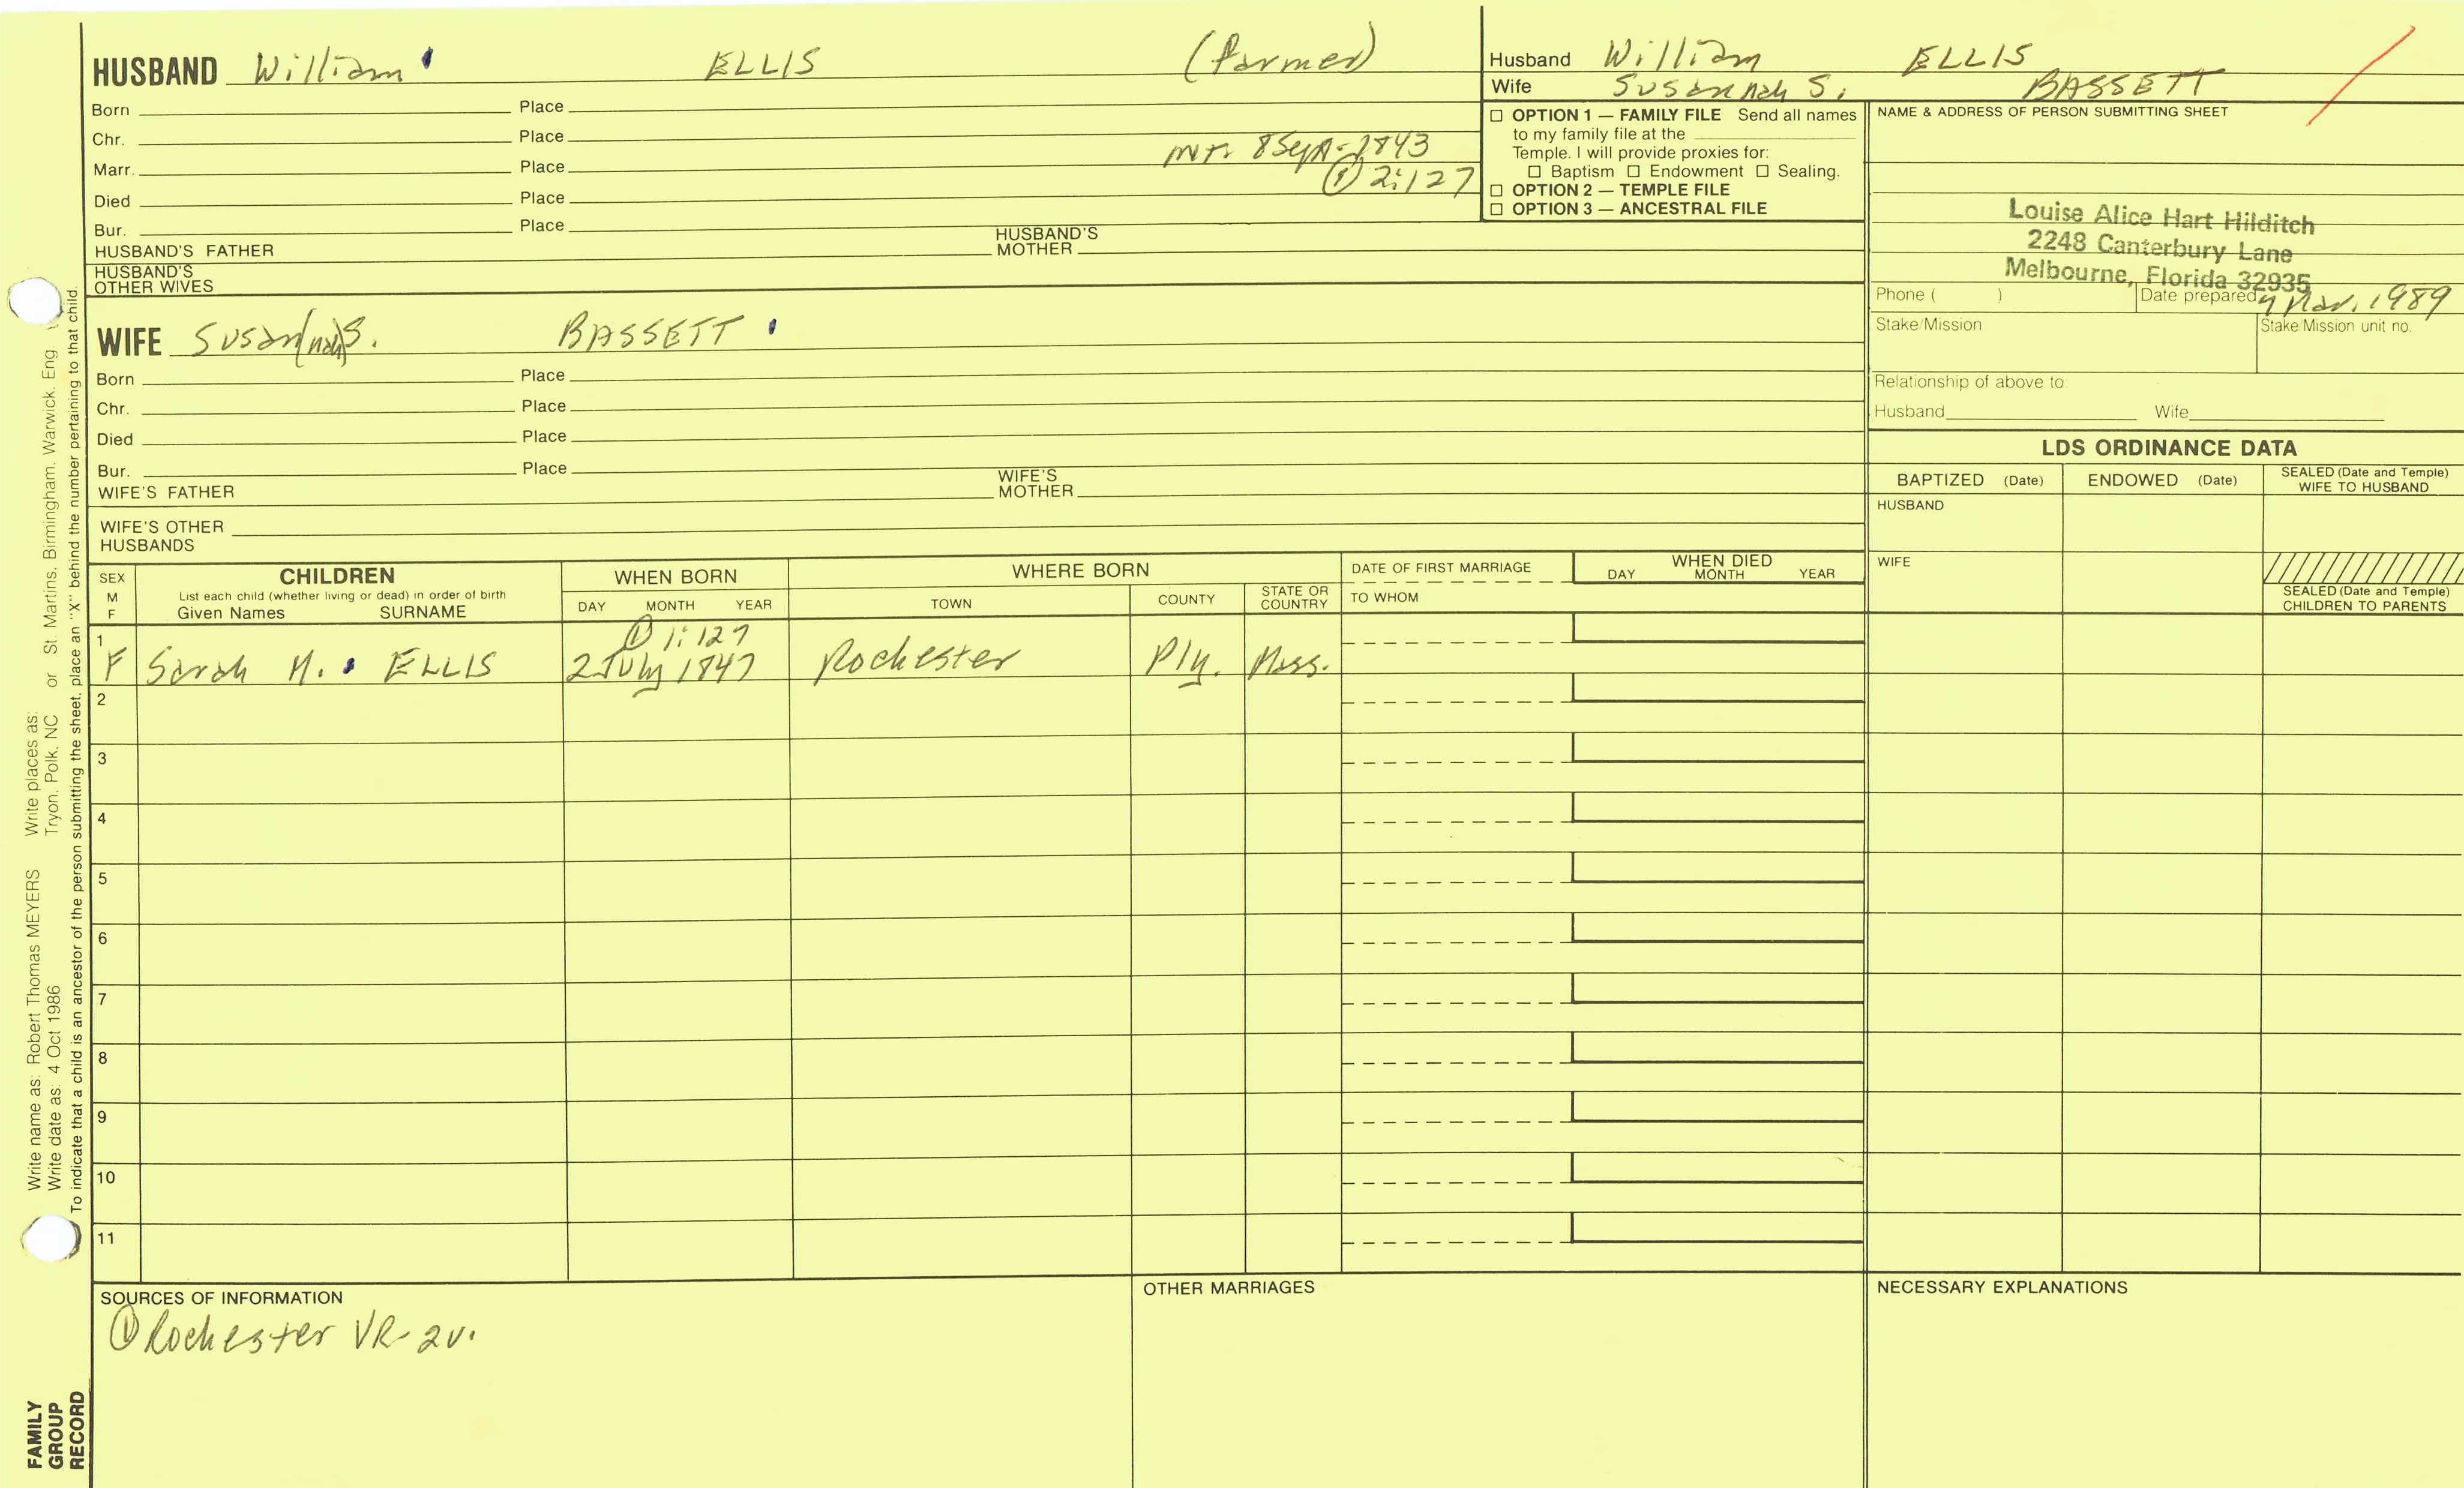 HUSBAND William ELLIS (farmer)
Born Place
Chr. Place
Marr. Place 8 Sept 1843
Died Place ① 2:127
Bur. Place
HUSBAND'S FATHER HUSBAND'S MOTHER
HUSBAND'S OTHER WIVES
WIFE Susan(nah) S. BASSETT
Born Place
Chr. Place
Died Place
Bur. Place
WIFE'S FATHER WIFE'S MOTHER
WIFE'S OTHER HUSBANDS
Husband William ELLIS
Wife Susannah S. BASSETT
☐ OPTION 1 — FAMILY FILE Send all names
to my family file at the
Temple. I will provide proxies for:
☐ Baptism ☐ Endowment ☐ Sealing.
☐ OPTION 2 — TEMPLE FILE
☐ OPTION 3 — ANCESTRAL FILE
NAME & ADDRESS OF PERSON SUBMITTING SHEET
Louise Alice Hart Hilditch
2248 Canterbury Lane
Melbourne, Florida 32935
Phone ( ) Date prepared 1989
Stake/Mission Stake/Mission unit no.
Relationship of above to:
Husband Wife
LDS ORDINANCE DATA
BAPTIZED (Date) ENDOWED (Date) SEALED (Date and Temple) WIFE TO HUSBAND
HUSBAND
WIFE
SEALED (Date and Temple) CHILDREN TO PARENTS
SEX M F
CHILDREN
List each child (whether living or dead) in order of birth
Given Names SURNAME
WHEN BORN
DAY MONTH YEAR
WHERE BORN
TOWN COUNTY STATE OR COUNTRY
DATE OF FIRST MARRIAGE
TO WHOM
WHEN DIED
DAY MONTH YEAR
① 1:127
1 F Sarah H. ELLIS 2 July 1847 Rochester Ply. Mass.
2
3
4
5
6
7
8
9
10
11
SOURCES OF INFORMATION
① Rochester VR-2v.
OTHER MARRIAGES
NECESSARY EXPLANATIONS
Write name as: Robert Thomas MEYERS Write places as:
Write date as: 4 Oct 1986 Tryon, Polk, NC or St. Martins, Birmingham, Warwick, Eng.
To indicate that a child is an ancestor of the person submitting the sheet, place an "X" behind the number pertaining to that child.
FAMILY
GROUP
RECORD